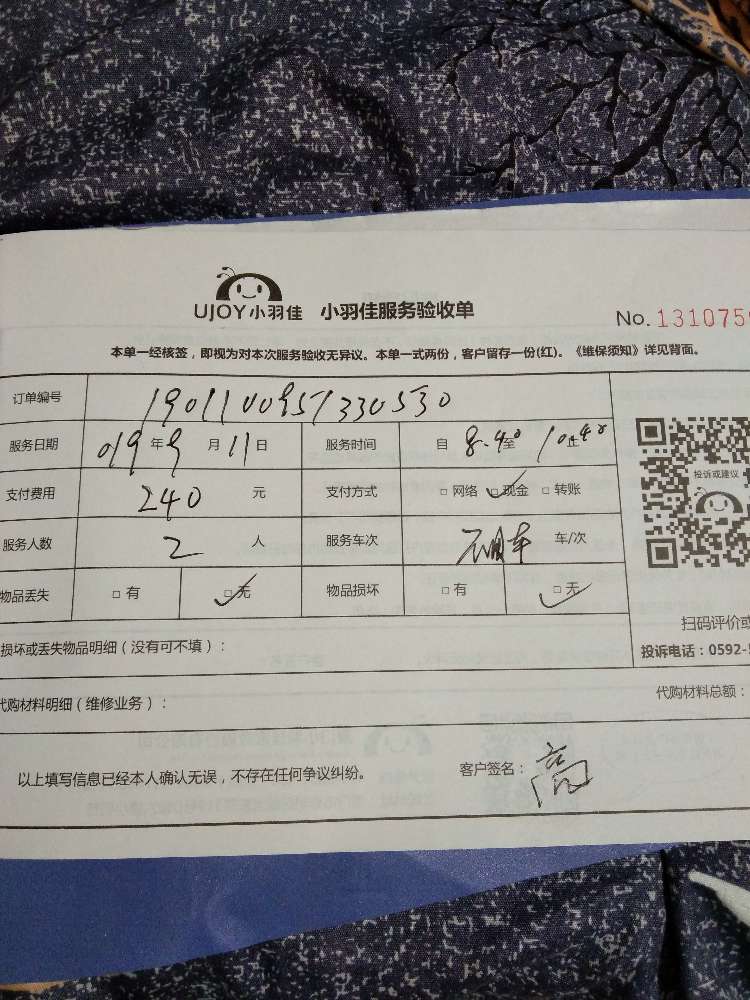 UJOY小羽佳 小羽佳服务验收单
No. 131075
本单一经核签，即视为对本次服务验收无异议。本单一式两份，客户留存一份(红)。《维保须知》详见背面。
订单编号
服务日期 019 年 9 月 11 日 服务时间 自 8.40 至 10 止 40
支付费用 240 元 支付方式 □ 网络 □ 现金 □ 转账
投诉或建议
服务人数 2 人 服务车次 不用车 车/次
物品丢失 □ 有 □ 无 物品损坏 □ 有 □ 无
扫码评价或
损坏或丢失物品明细（没有可不填）：
投诉电话：0592-
代购材料明细（维修业务）：
代购材料总额：
以上填写信息已经本人确认无误，不存在任何争议纠纷。
客户签名：高